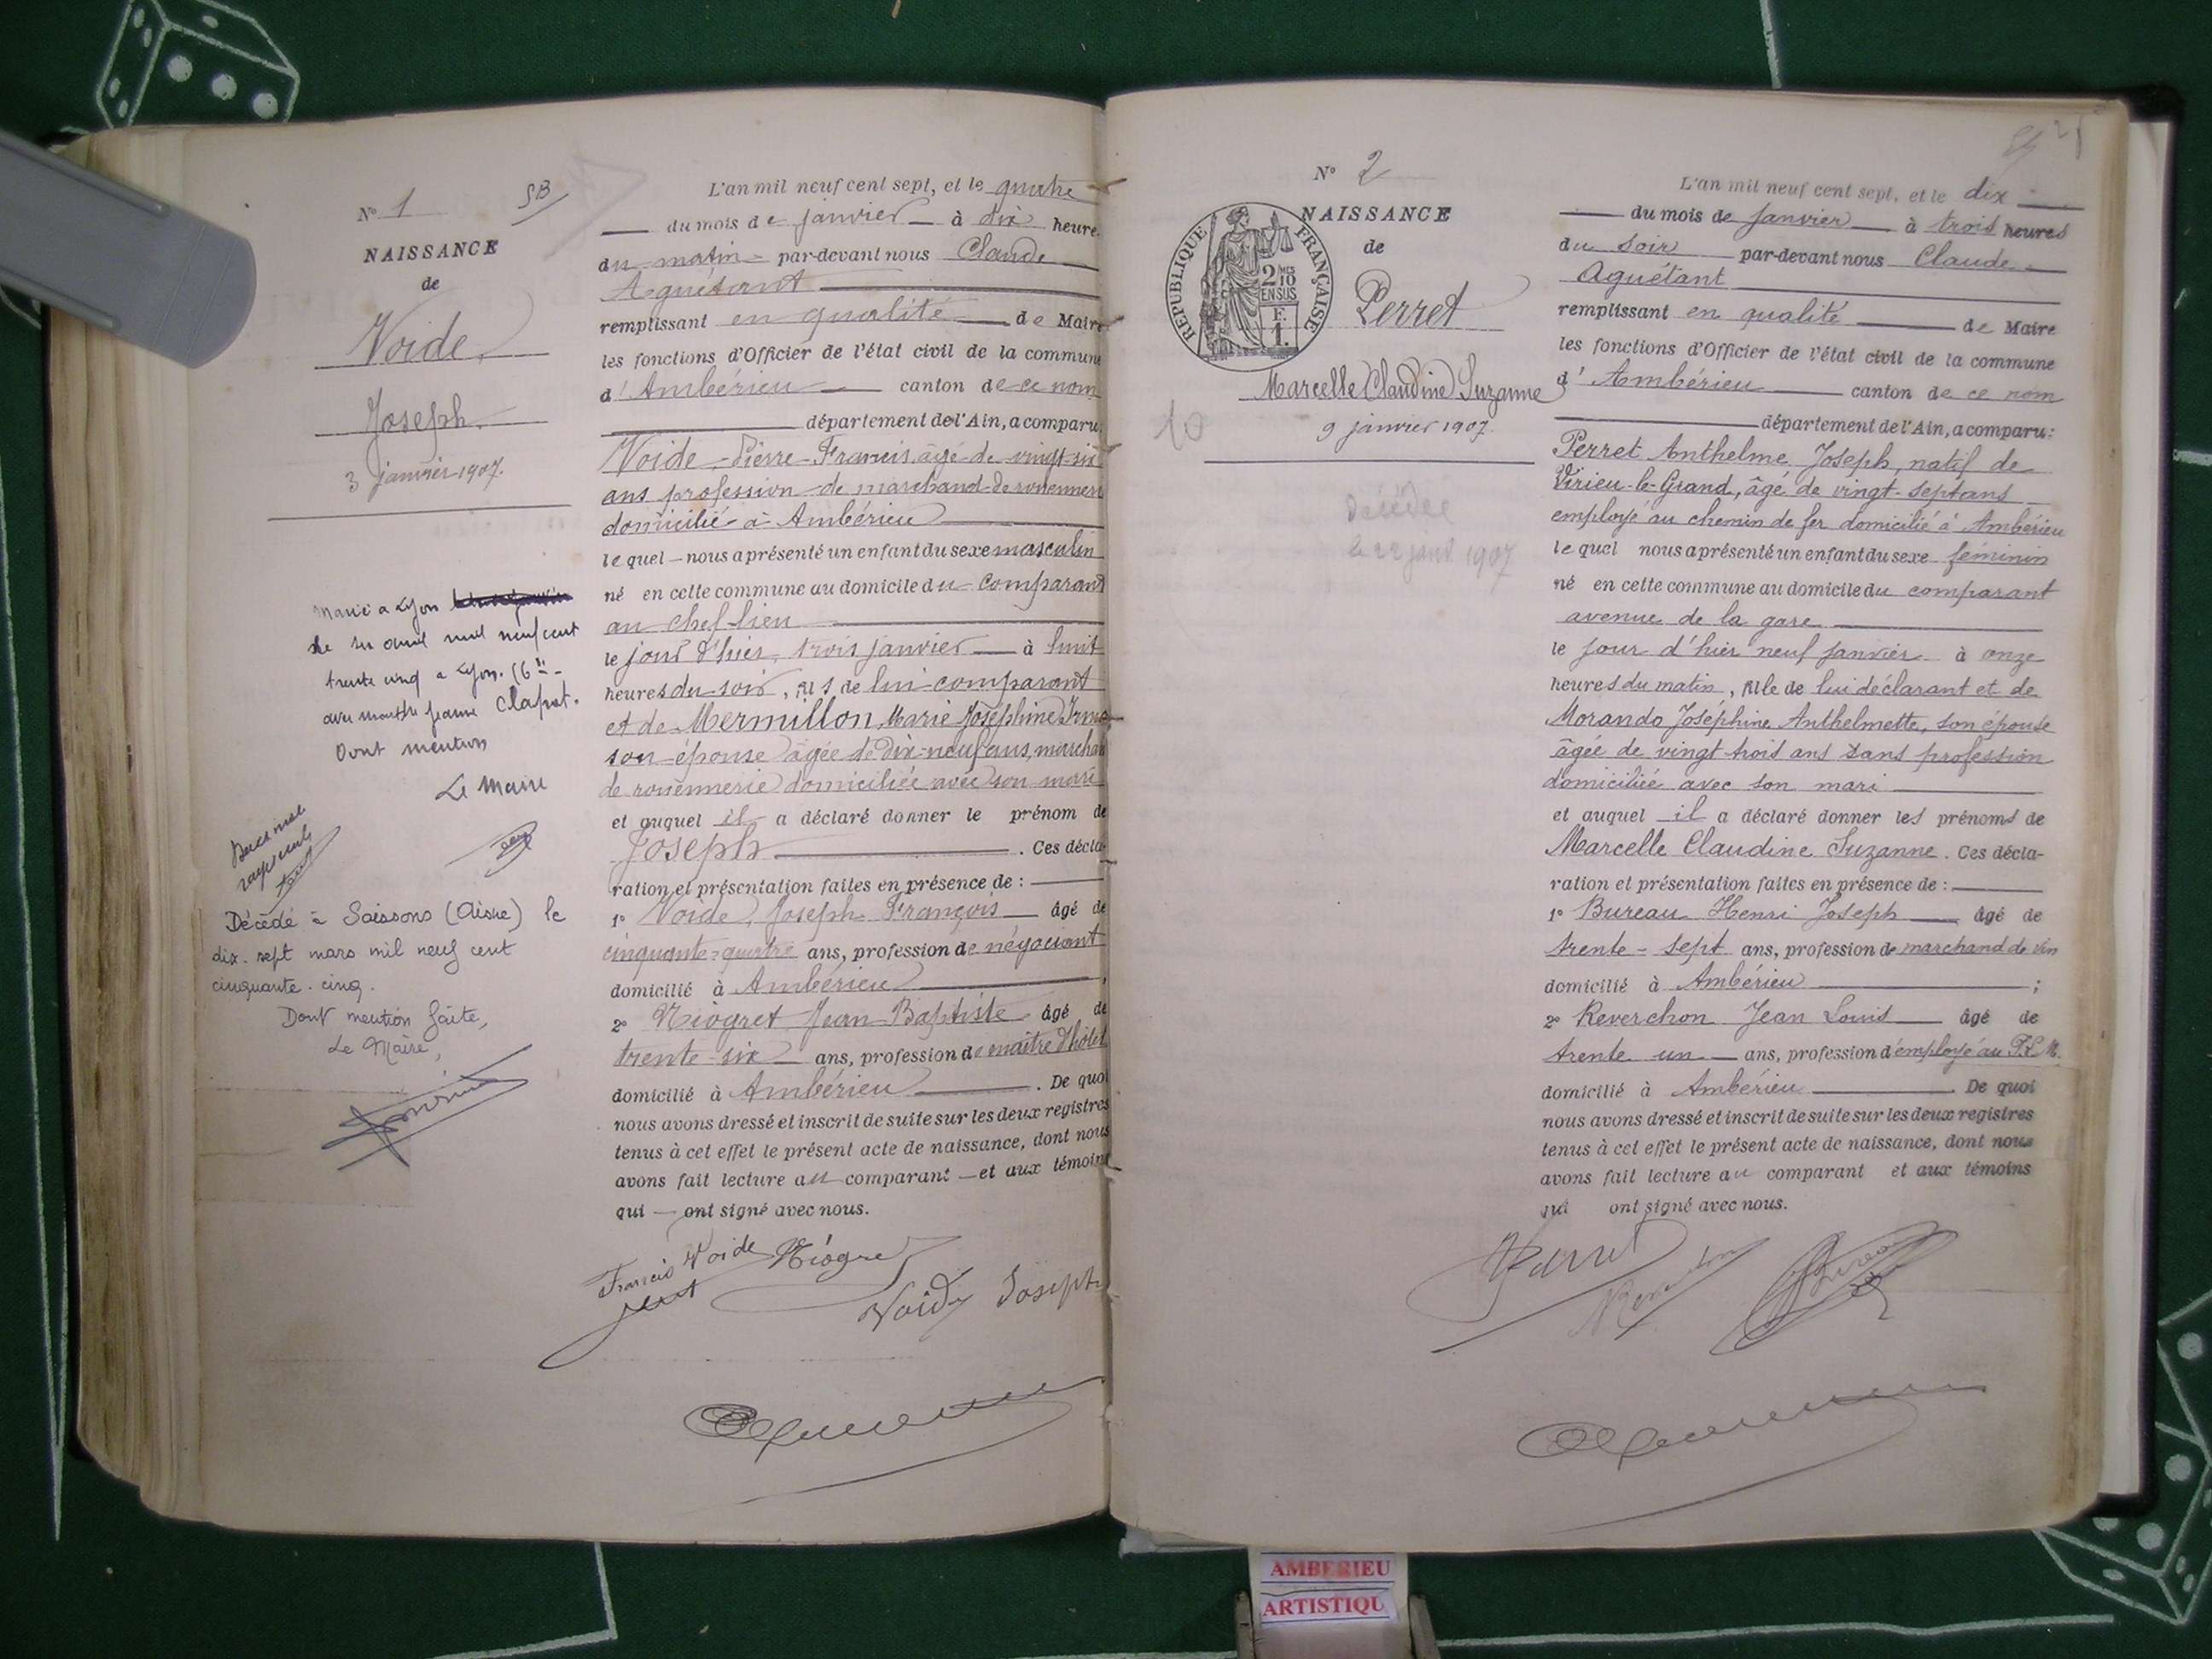 N° 1
SB
NAISSANCE
de
Voide
Joseph
3 janvier 1907.
Marié à Lyon
le six avril mil neuf cent
trente cinq à Lyon. (6e
avec Marthe Jeanne Clapot.
Dont mention
Le Maire
Décédé à Soissons (Aisne) le
dix-sept mars mil neuf cent
cinquante-cinq.
Dont mention faite,
Le Maire,
L'an mil neuf cent sept, et le quatre
du mois de janvier à dix heures
du matin par-devant nous Claude
Aguétant
remplissant en qualité de Maire
les fonctions d'Officier de l'état civil de la commune
d'Ambérieu canton de ce nom
département de l'Ain, a comparu:
Voide Pierre Francis âgé de vingt-six
ans profession de marchand de rouennerie
domicilié à Ambérieu
lequel nous a présenté un enfant du sexe masculin
né en cette commune au domicile du comparant
au chef-lieu
le jour d'hier, trois janvier à huit
heures du soir, fils de lui comparant
et de Mermillon Marie Joséphine Irma
son épouse âgée de dix-neuf ans, marchande
de rouennerie domiciliée avec son mari
et auquel il a déclaré donner le prénom de
Joseph. Ces décla-
ration et présentation faites en présence de :
1° Voide Joseph François âgé de
cinquante-quatre ans, profession de négociant
domicilié à Ambérieu,
2° Niogret Jean Baptiste âgé de
trente-six ans, profession de maître d'hôtel
domicilié à Ambérieu. De quoi
nous avons dressé et inscrit de suite sur les deux registres
tenus à cet effet le présent acte de naissance, dont nous
avons fait lecture au comparant et aux témoins
qui ont signé avec nous.
Francis Voide Niogret
Voide Joseph
N° 2
NAISSANCE
de
RÉPUBLIQUE FRANÇAISE
2 MES
10
EN SUS
F.
1.
Perret
Marcelle Claudine Suzanne
9 janvier 1907.
10
Décédée
le 22 janv 1907
L'an mil neuf cent sept, et le dix
du mois de janvier à trois heures
du soir par-devant nous Claude
Aguétant
remplissant en qualité de Maire
les fonctions d'Officier de l'état civil de la commune
d'Ambérieu canton de ce nom
département de l'Ain, a comparu:
Perret Anthelme Joseph, natif de
Virieu-le-Grand, âgé de vingt-sept ans
employé au chemin de fer domicilié à Ambérieu
lequel nous a présenté un enfant du sexe féminin
né en cette commune au domicile du comparant
avenue de la gare
le jour d'hier neuf janvier à onze
heures du matin, fille de lui déclarant et de
Morando Joséphine Anthelmette, son épouse
âgée de vingt trois ans sans profession
domiciliée avec son mari
et auquel il a déclaré donner les prénoms de
Marcelle Claudine Suzanne. Ces décla-
ration et présentation faites en présence de :
1° Bureau Henri Joseph âgé de
trente-sept ans, profession de marchand de vin
domicilié à Ambérieu ;
2° Reverchon Jean Louis âgé de
trente un ans, profession d'employé au P.L.M.
domicilié à Ambérieu. De quoi
nous avons dressé et inscrit de suite sur les deux registres
tenus à cet effet le présent acte de naissance, dont nous
avons fait lecture au comparant et aux témoins
qui ont signé avec nous.
Perret
AMBERIEU
ARTISTIQU